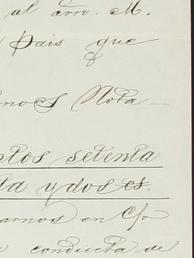 al arro. M.
pais que
nos Nota
ntos setenta
ta y dos cs.
arnos en C/o
conducta de